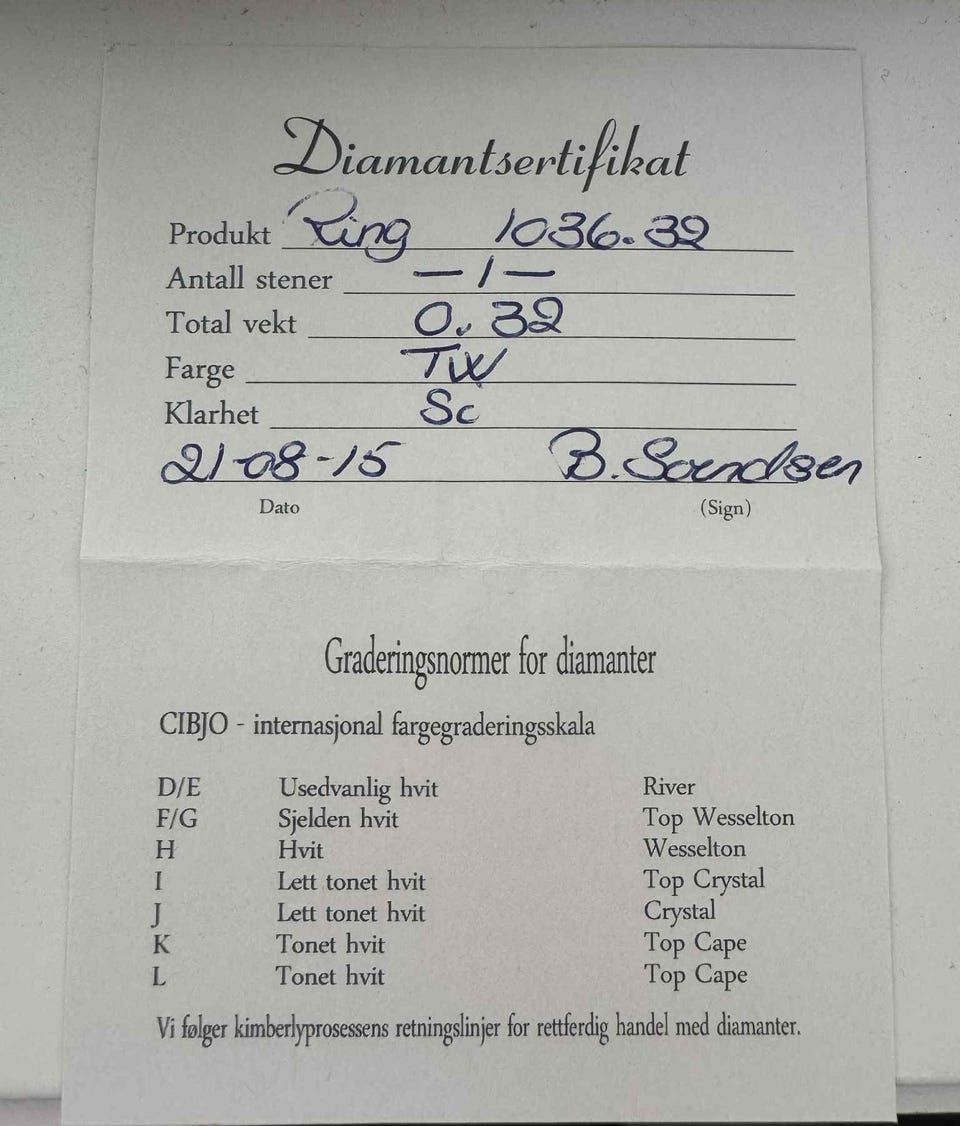 Diamantsertifikat
Produkt Ring 1036.32
Antall stener — 1 —
Total vekt 0.32
Farge TW
Klarhet Sc
21-08-15 B. Svendsen
Dato (Sign)
Graderingsnormer for diamanter
CIBJO - internasjonal fargegraderingsskala
D/E Usedvanlig hvit River
F/G Sjelden hvit Top Wesselton
H Hvit Wesselton
I Lett tonet hvit Top Crystal
J Lett tonet hvit Crystal
K Tonet hvit Top Cape
L Tonet hvit Top Cape
Vi følger kimberlyprosessens retningslinjer for rettferdig handel med diamanter.